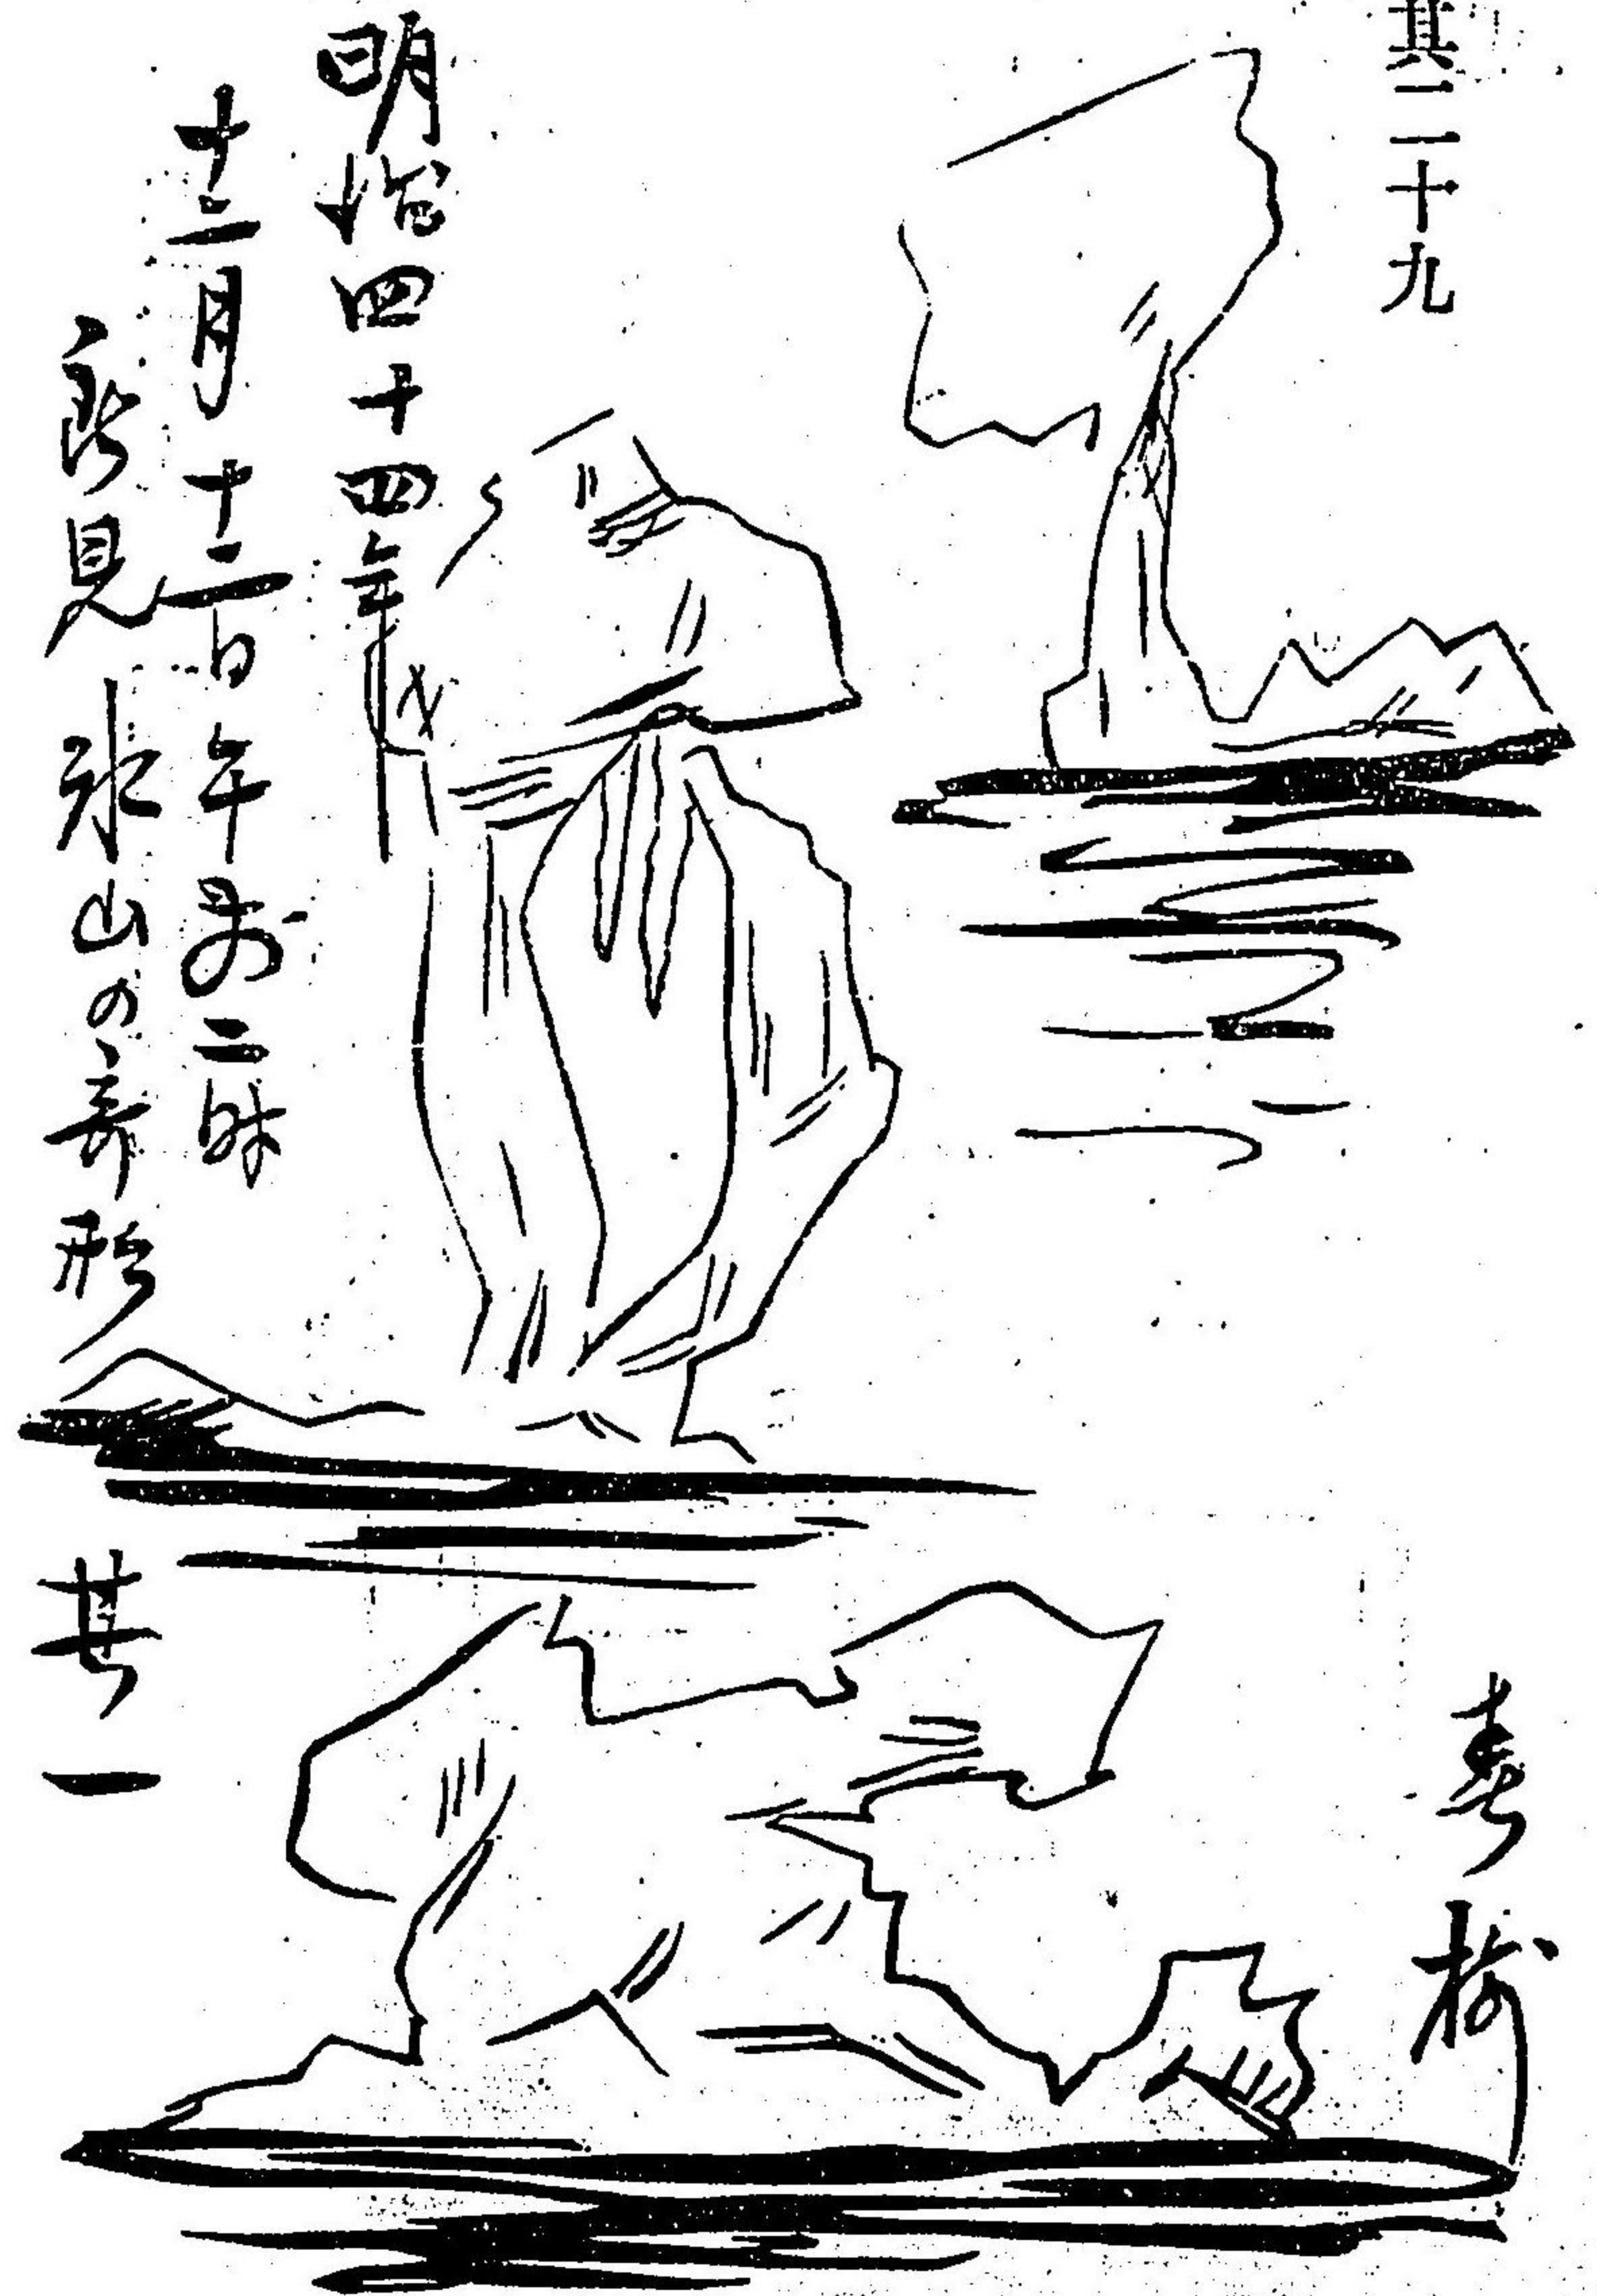 其二十九
明治四十四年
十二月十二日午前二時
所見氷山の奇形
其一
春樹